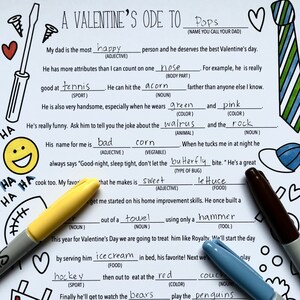 A VALENTINE'S ODE TO Pops
(NAME YOU CALL YOUR DAD)
My dad is the most happy person and he deserves the best Valentine's day.
(ADJECTIVE)
He has more attributes than I can count on one nose. For example, he is really
(BODY PART)
good at tennis. He can hit the acorn farther than anyone else I know.
(SPORT) (NOUN)
He is also very handsome, especially when he wears green and pink
(COLOR) (COLOR)
He's really funny. Ask him to tell you the joke about the walrus and the rock
(ANIMAL) (NOUN)
His name for me is bad corn. When he tucks me in at night he
(ADJECTIVE) (VEGETABLE)
always says "Good night, sleep tight, don't let the butterfly bite." He's a great
(TYPE OF BUG)
cook too. My favor that he makes is sweet lettuce
(ADJECTIVE) (FOOD)
get me started on his home improvement skills. He once built a
out of a towel using only a hammer
(NOUN) (NOUN) (TOOL)
This year for Valentine's Day we are going to treat him like Royalty. We'll start the day
by serving him icecream in bed, his favorite! Next we
(FOOD)
hockey then out to eat at the red
(SPORT) (COLOR)
Finally he'll get to watch the bears play the penguins
HA
HA
HA
HA